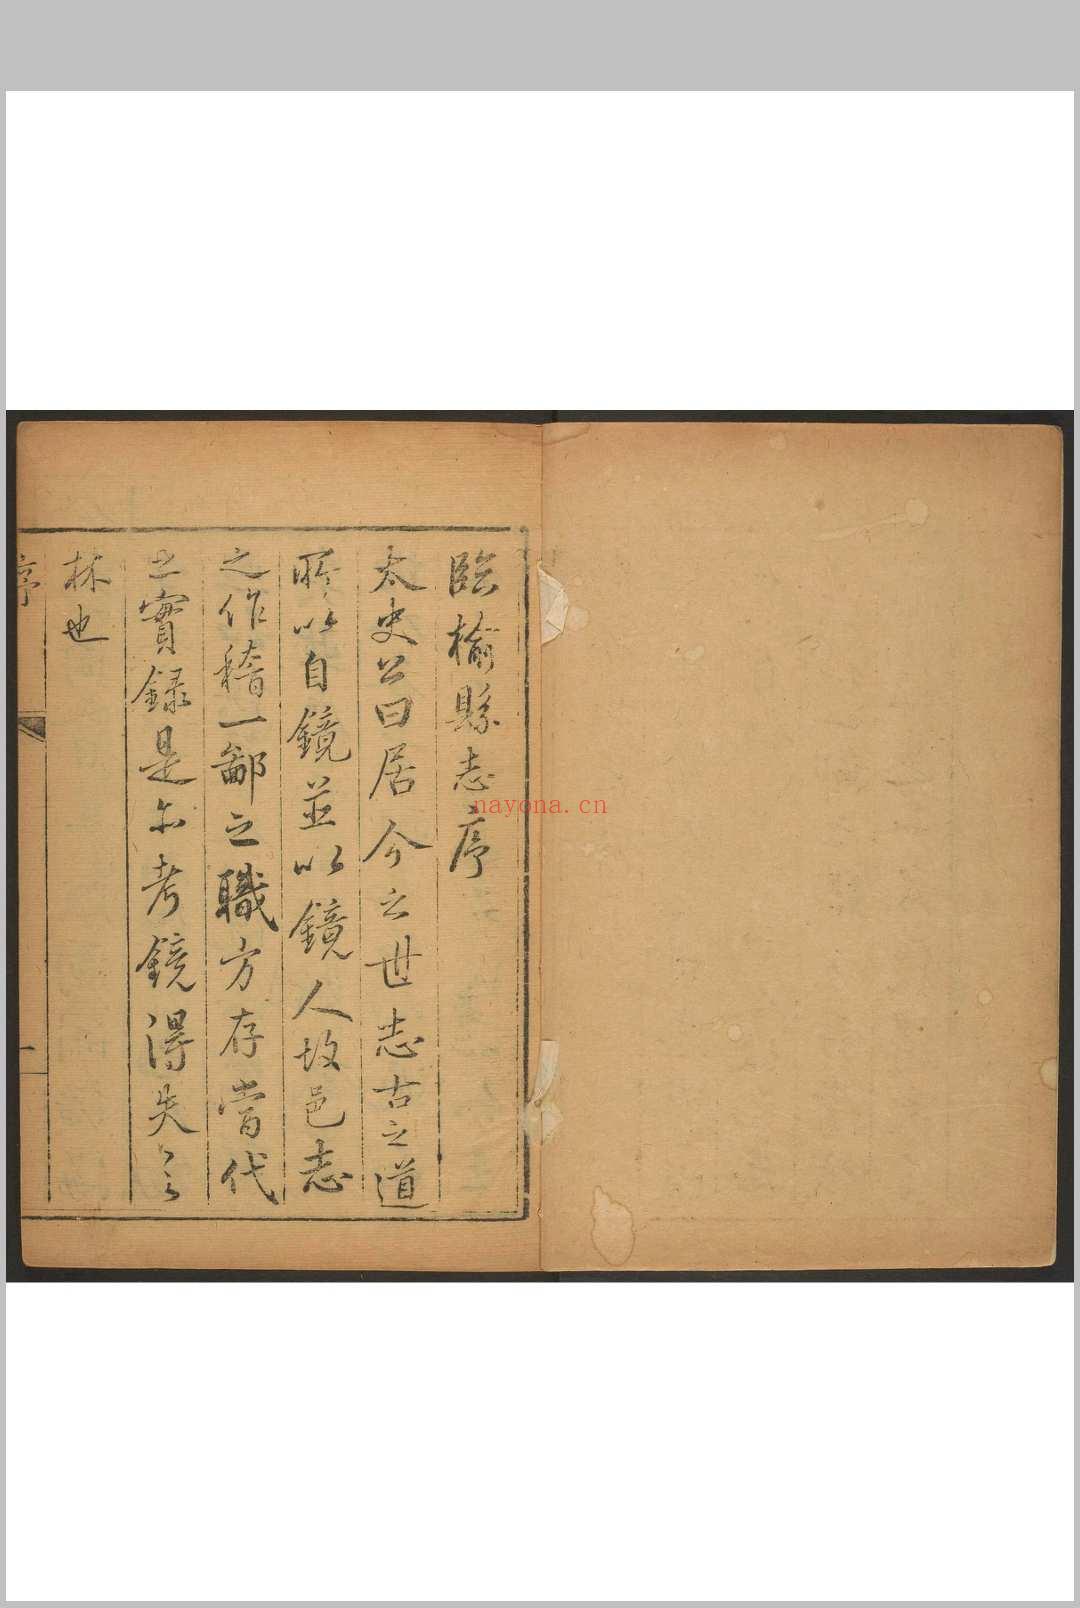 臨榆縣志序
太史公曰居今之世志古之道
所以自鏡並以鏡人故邑志
之作稽一鄙之職方存當代
之實録是亦考鏡得失之
林也
序
一
nayona.cn